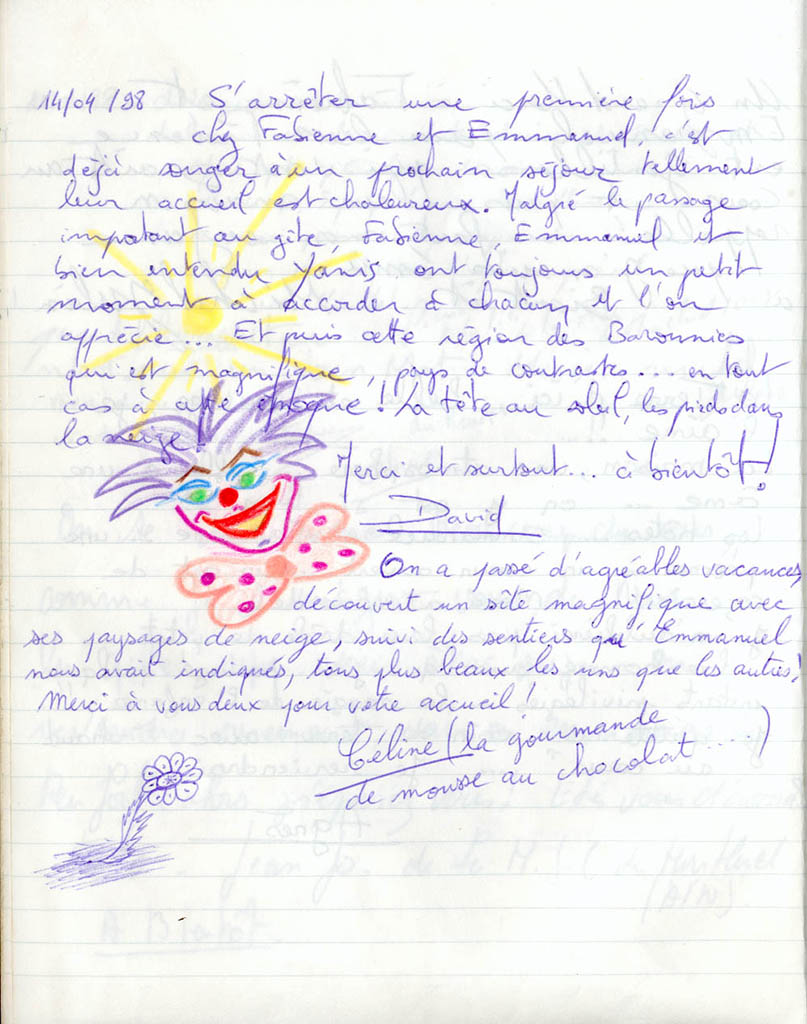 14/04/98 S'arrêter une première fois
chez Fabienne et Emmanuel, c'est
déjà songer à un prochain séjour tellement
leur accueil est chaleureux. Malgré le passage
important au gîte, Fabienne, Emmanuel et
bien entendu Yanis ont toujours un petit
moment à accorder à chacun, et l'on
apprécie... Et puis cette région des Baronnies
qui est magnifique, pays de contrastes... en tout
cas à cette époque ! La tête au soleil, les pieds dans
la neige !
Merci et surtout... à bientôt !
David
On a passé d'agréables vacances,
découvert un site magnifique avec
ses paysages de neige, suivi des sentiers qu'Emmanuel
nous avait indiqués, tous plus beaux les uns que les autres !
Merci à vous deux pour votre accueil !
Céline (la gourmande
de mousse au chocolat.....)